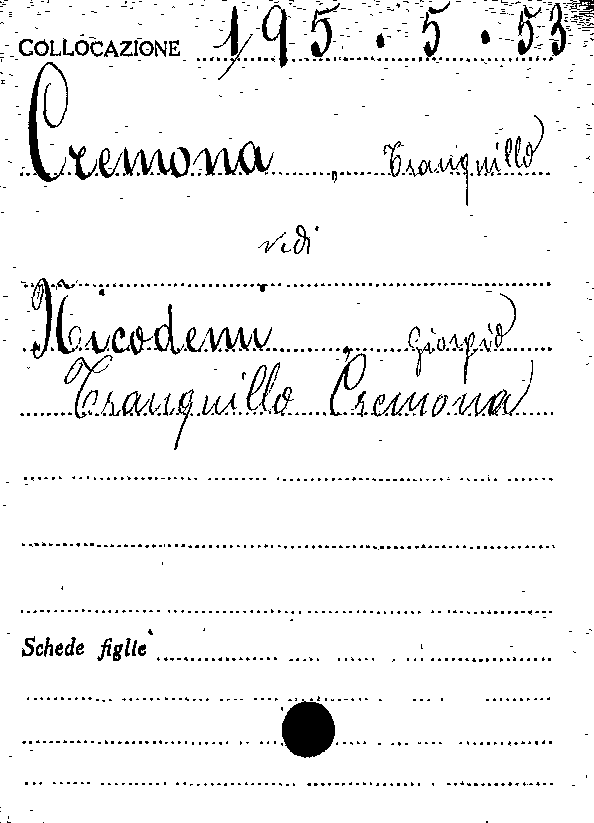 COLLOCAZIONE 195.5.53
Cremona, Tranquillo
vedi
Nicodemi, Giorgio
Tranquillo Cremona
Schede figlie